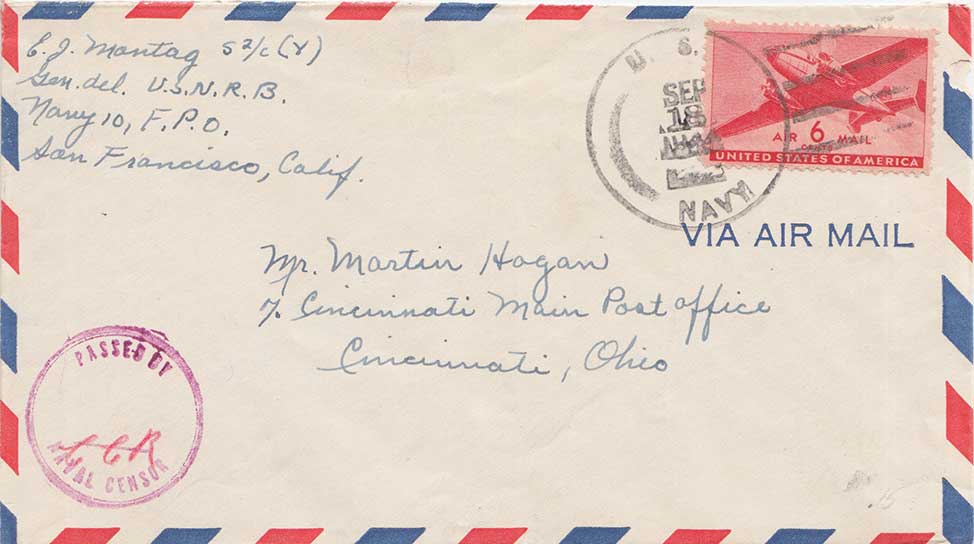 E. J. Montag S 2/c (Y)
Gen. del. U.S.N.R.B.
Navy 10, F.P.O.
San Francisco, Calif.
U. S.
SEP
18
NAVY
AIR 6 MAIL
CENTS
UNITED STATES OF AMERICA
VIA AIR MAIL
Mr. Martin Hogan
Cincinnati Main Post office
Cincinnati, Ohio
PASSED BY
NAVAL CENSOR
15